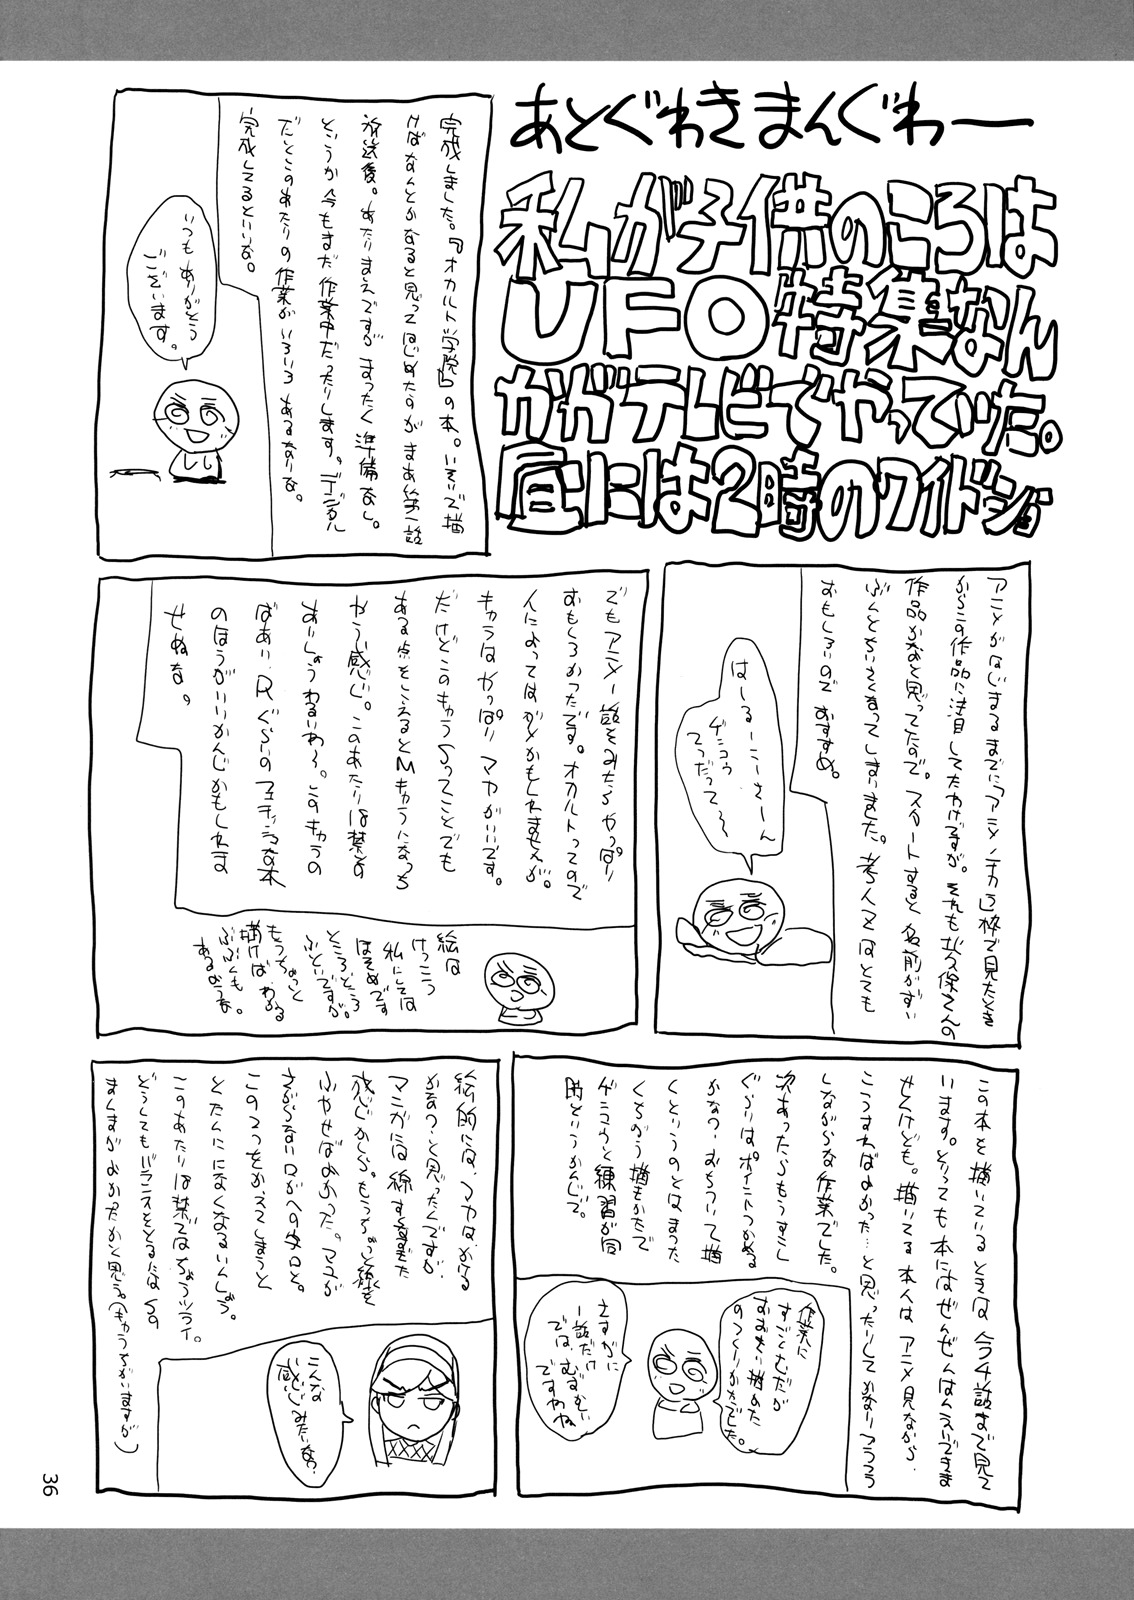 あとぐわきまんぐわー
私が子供のころは
UFO特集なん
かがテレビでやっていた。
昼には2時のワイドショ
完成しました。『オカルト学院』の本。いそいで描
けばなんとかなると思ってはじめたのがまあ第一話
放送後。あたりまえですがまったく準備なし。
というか今もまだ作業中だったりします。デジタル
だとこのあたりの作業がいろいろあるなりな。
完成してるといいな。
いつもありがとう
ございます。
アニメがはじまるまでに「アニメノチカラ」枠で見たとき
からこの作品に注目してたわけですが。それも
作品かなあと思ってたので。スタートすると名前がずい
ぶんとちいさくなってしまいました。
おもしろいのでおすすめ。
はーるーこーさーん
ゲンコウ
てつだって〜
でもアニメ一話をみたらやっぱり
おもしろかったです。オカルトってので
人によってはダメかもしれませんが。
キャラはやっぱりマヤがいいです。
だけどこのキャラSってことでも
ある点をこえるとMキャラになっち
ゃう感じ。このあたりは
あいしょうわるいわ〜。このキャラの
ばあい、Rぐらいのフェチッシュな本
のほうがいいかんじかもしれま
せぬな。
絵は
けっこう
私にしては
ほそめです
ところどころ
ふといですが。
もうちょっと
描けばわかる
ぶぶんも
あるようだ。
この本を描いているときは今4話まで見て
います。とっても本にはぜんぜんはんえいできま
せんけども。描いてる本人はアニメ見ながら、
こうすればよかった…と思ったりしてかなりフラフラ
しながらな作業でした。
次あったらもうすこし
ぐらいはポイントつかめる
かなっ・おちついて描
くというのとはまった
くちがう描きかたで
ゲンコウと練習が同
時というかんじで。
作業に
すごくむだが
おおきい描めた
のつくりかたでした。
さすがに
一話だけ
では、むずかしい
ですわね
絵的には、マヤは、かける
かなっ・と思ったんですが
マンガには線すくなすぎた
感じかしら。もうちょっと線を
ふやせばよかった。マユが
さがらないロがへの字口と。
この2つをかえてしまうと
とたんにになくなるいんしょう。
このあたりは禁ではちょうツライ。
どうしてもバランスをとるにはSの
まんまがよかったかと思う。(もうちがいますが)
こんな
感じみたいな?
36